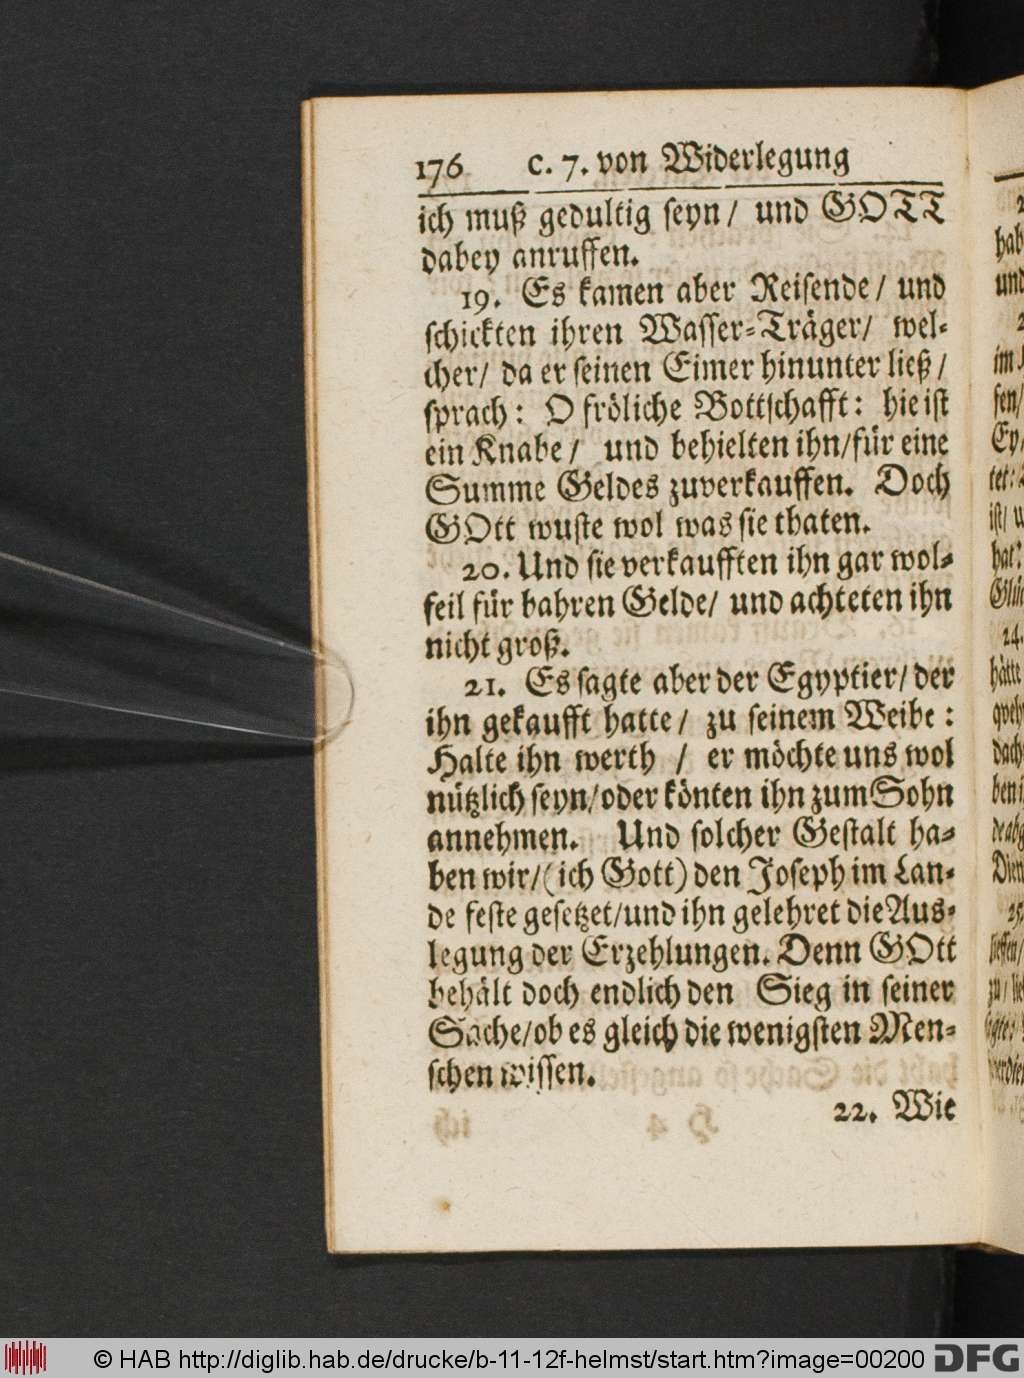 176 c. 7. von Widerlegung
ich muß gedultig seyn / und GOTT
dabey anruffen.
19. Es kamen aber Reisende / und
schickten ihren Wasser-Träger / wel-
cher / da er seinen Eimer hinunter ließ /
sprach: O fröliche Bottschafft: hie ist
ein Knabe / und behielten ihn / für eine
Summe Geldes zuverkauffen. Doch
GOtt wuste wol was sie thaten.
20. Und sie verkaufften ihn gar wol-
feil für bahren Gelde / und achteten ihn
nicht groß.
21. Es sagte aber der Egyptier / der
ihn gekaufft hatte / zu seinem Weibe:
Halte ihn werth / er möchte uns wol
nützlich seyn / oder könten ihn zum Sohn
annehmen. Und solcher Gestalt ha-
ben wir / (ich Gott) den Joseph im Lan-
de feste gesetzet / und ihn gelehret die Aus-
legung der Erzehlungen. Denn GOtt
behält doch endlich den Sieg in seiner
Sache / ob es gleich die wenigsten Men-
schen wissen.
22. Wie
hab
und
im
sen /
Ey /
ist / u
hat?
Glüc
24.
hätte
dach
ben i
Dien
25.
© HAB http://diglib.hab.de/drucke/b-11-12f-helmst/start.htm?image=00200 DFG